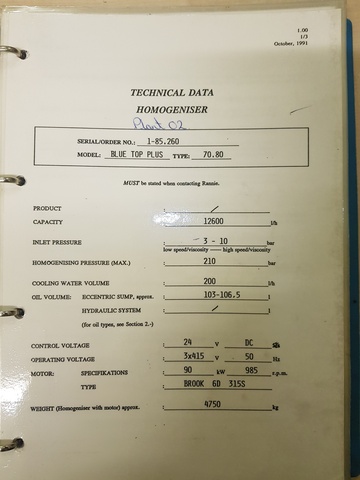 1.00
1/3
October, 1991
TECHNICAL DATA
HOMOGENISER
Plant 02
SERIAL/ORDER NO.: 1-85.260
MODEL: BLUE TOP PLUS TYPE: 70.80
MUST be stated when contacting Rannie.
PRODUCT : /
CAPACITY : 12600 l/h
INLET PRESSURE : 3 - 10 bar
low speed/viscosity —— high speed/viscosity
HOMOGENISING PRESSURE (MAX.) : 210 bar
COOLING WATER VOLUME : 200 l/h
OIL VOLUME: ECCENTRIC SUMP, approx. : 103-106.5 l
HYDRAULIC SYSTEM : / l
(for oil types, see Section 2.-)
CONTROL VOLTAGE : 24 V DC
OPERATING VOLTAGE : 3x415 V 50 Hz
MOTOR: SPECIFIKATIONS : 90 kW 985 r.p.m.
TYPE : BROOK 6D 315S
WEIGHT (Homogeniser with motor) approx. : 4750 kg